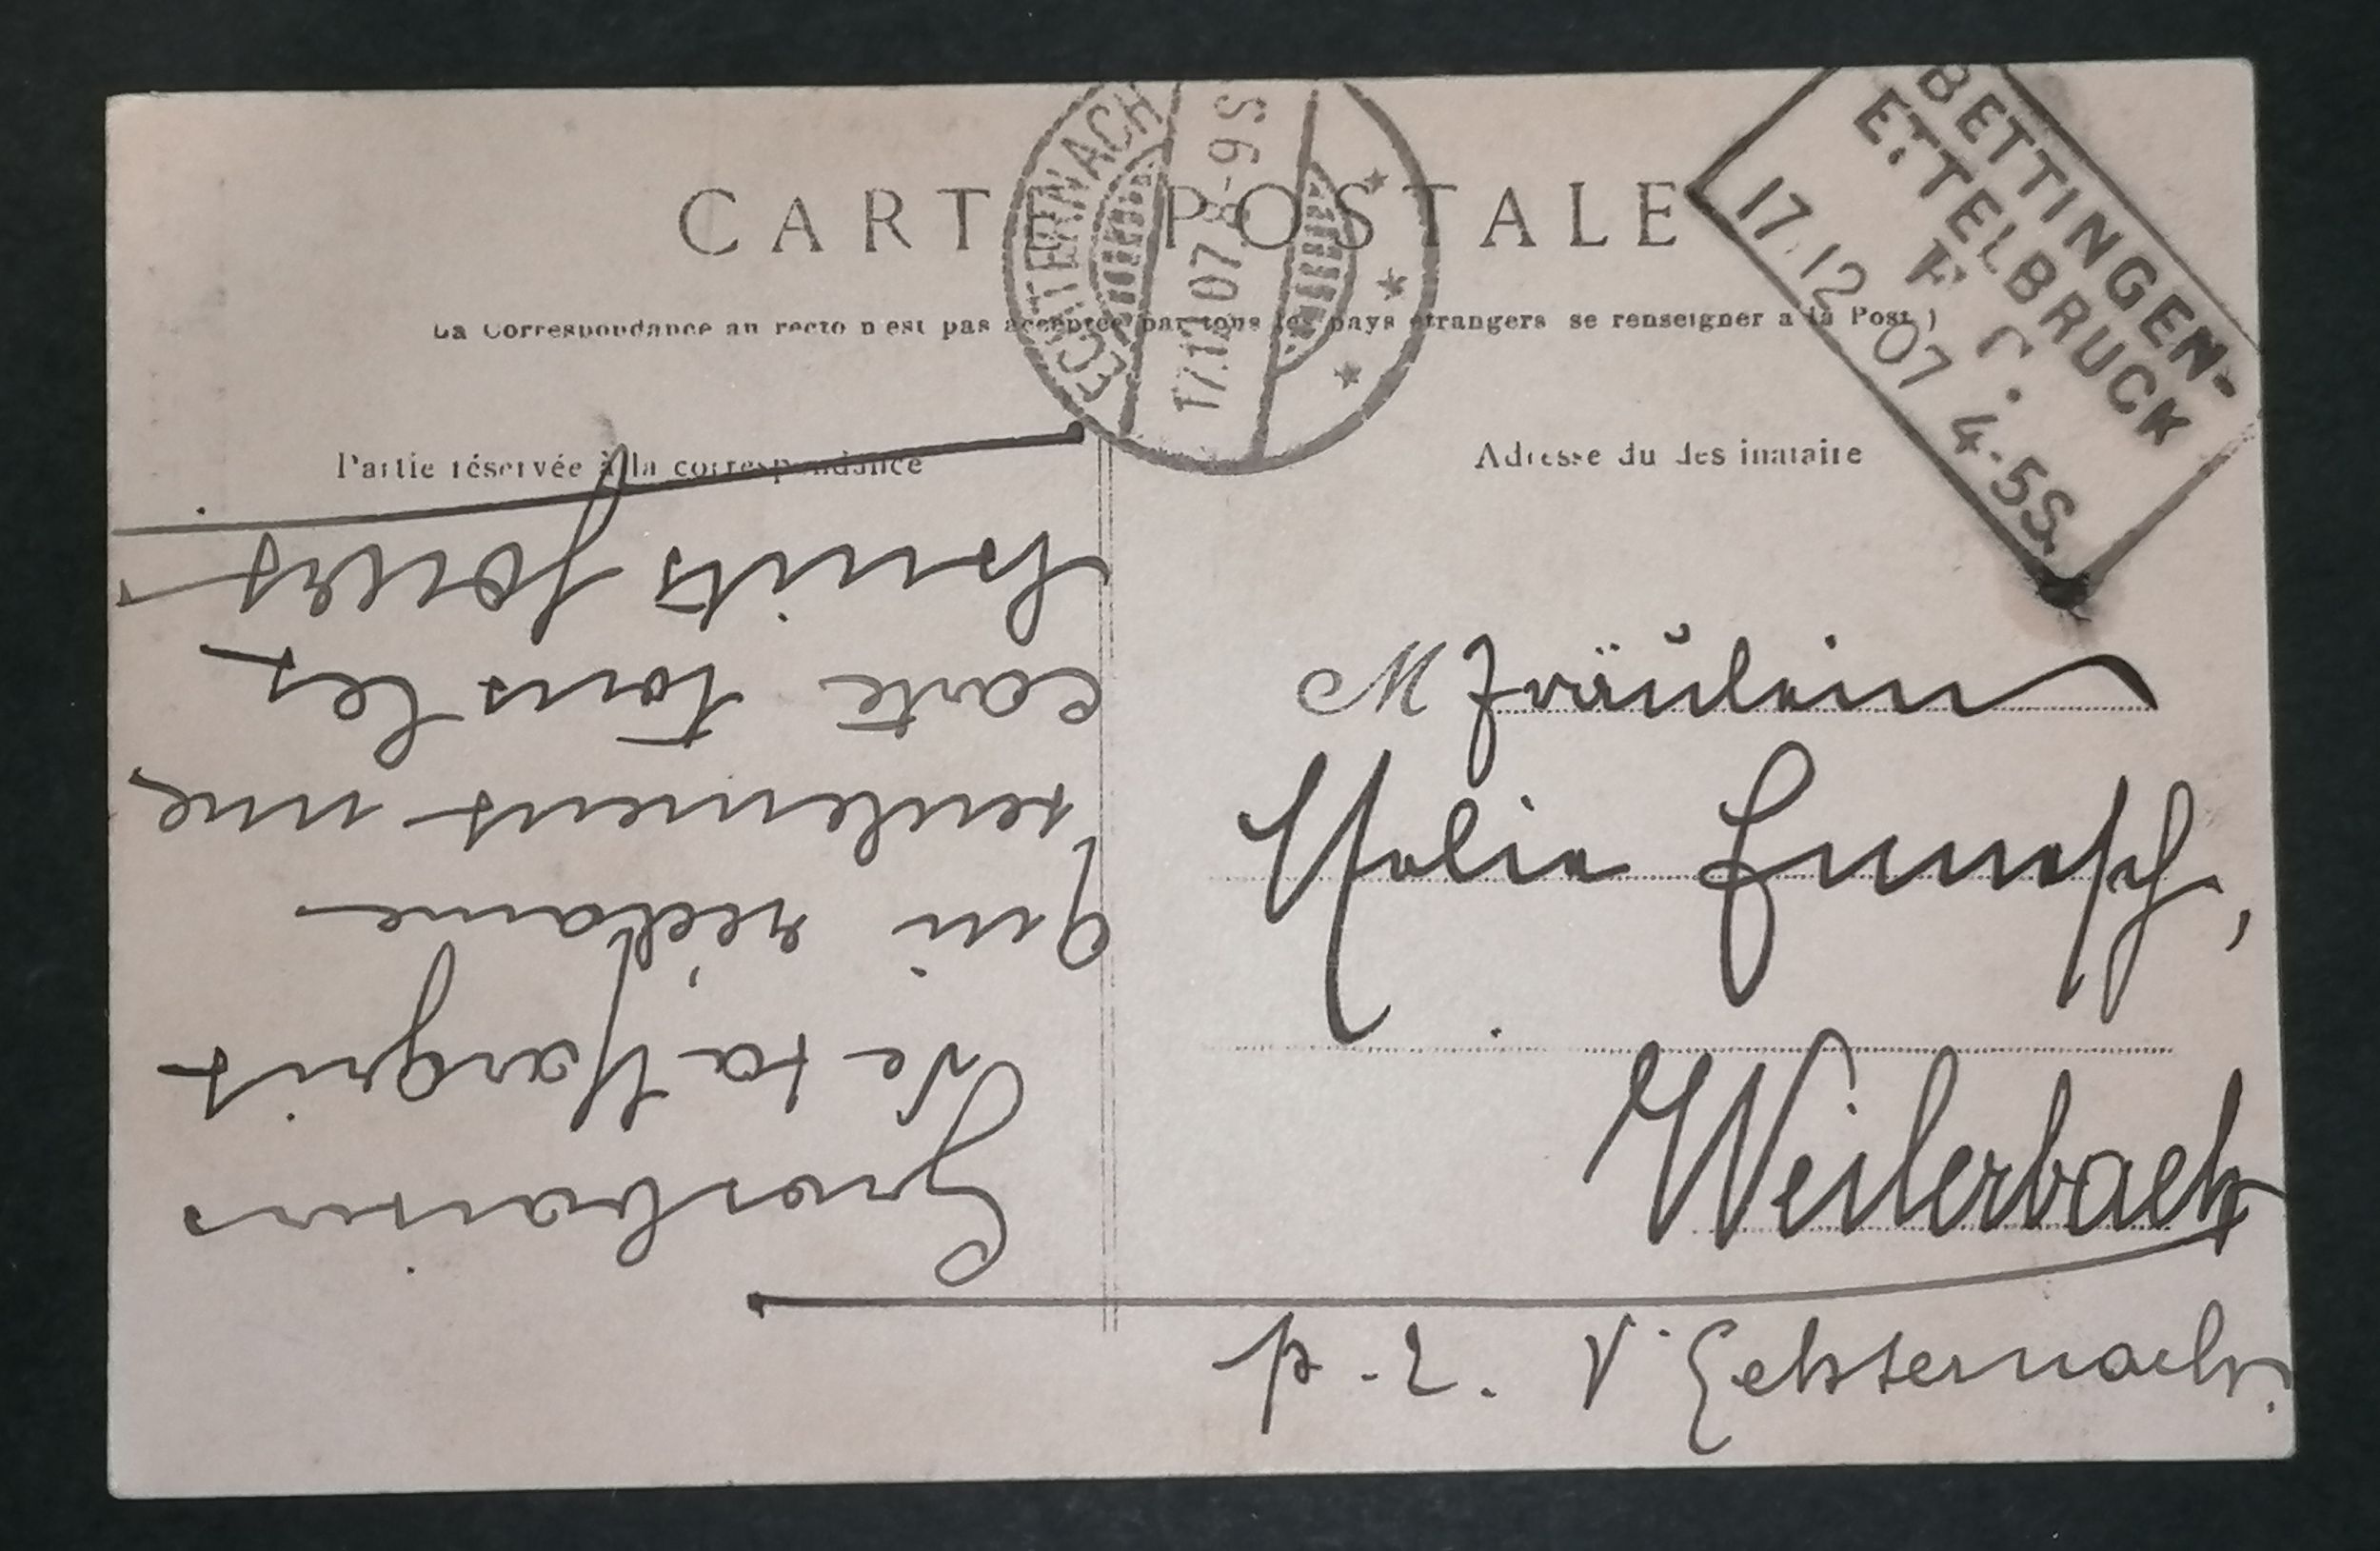 CARTE POSTALE
La Correspondance au recto n'est pas acceptée par tous les pays étrangers se renseigner a la Post )
Partie réservée à la correspondance
Adresse du destinataire
ECHTERNACH
17.12.07 8-9S
BETTINGEN-
ETTELBRUCK
17.12.07 4-5S.
M Fräulein
Weilerbach
p. Echternach.
Gros baisers
de ta Margrit
qui réclame
seulement une
carte tous les
huits jours